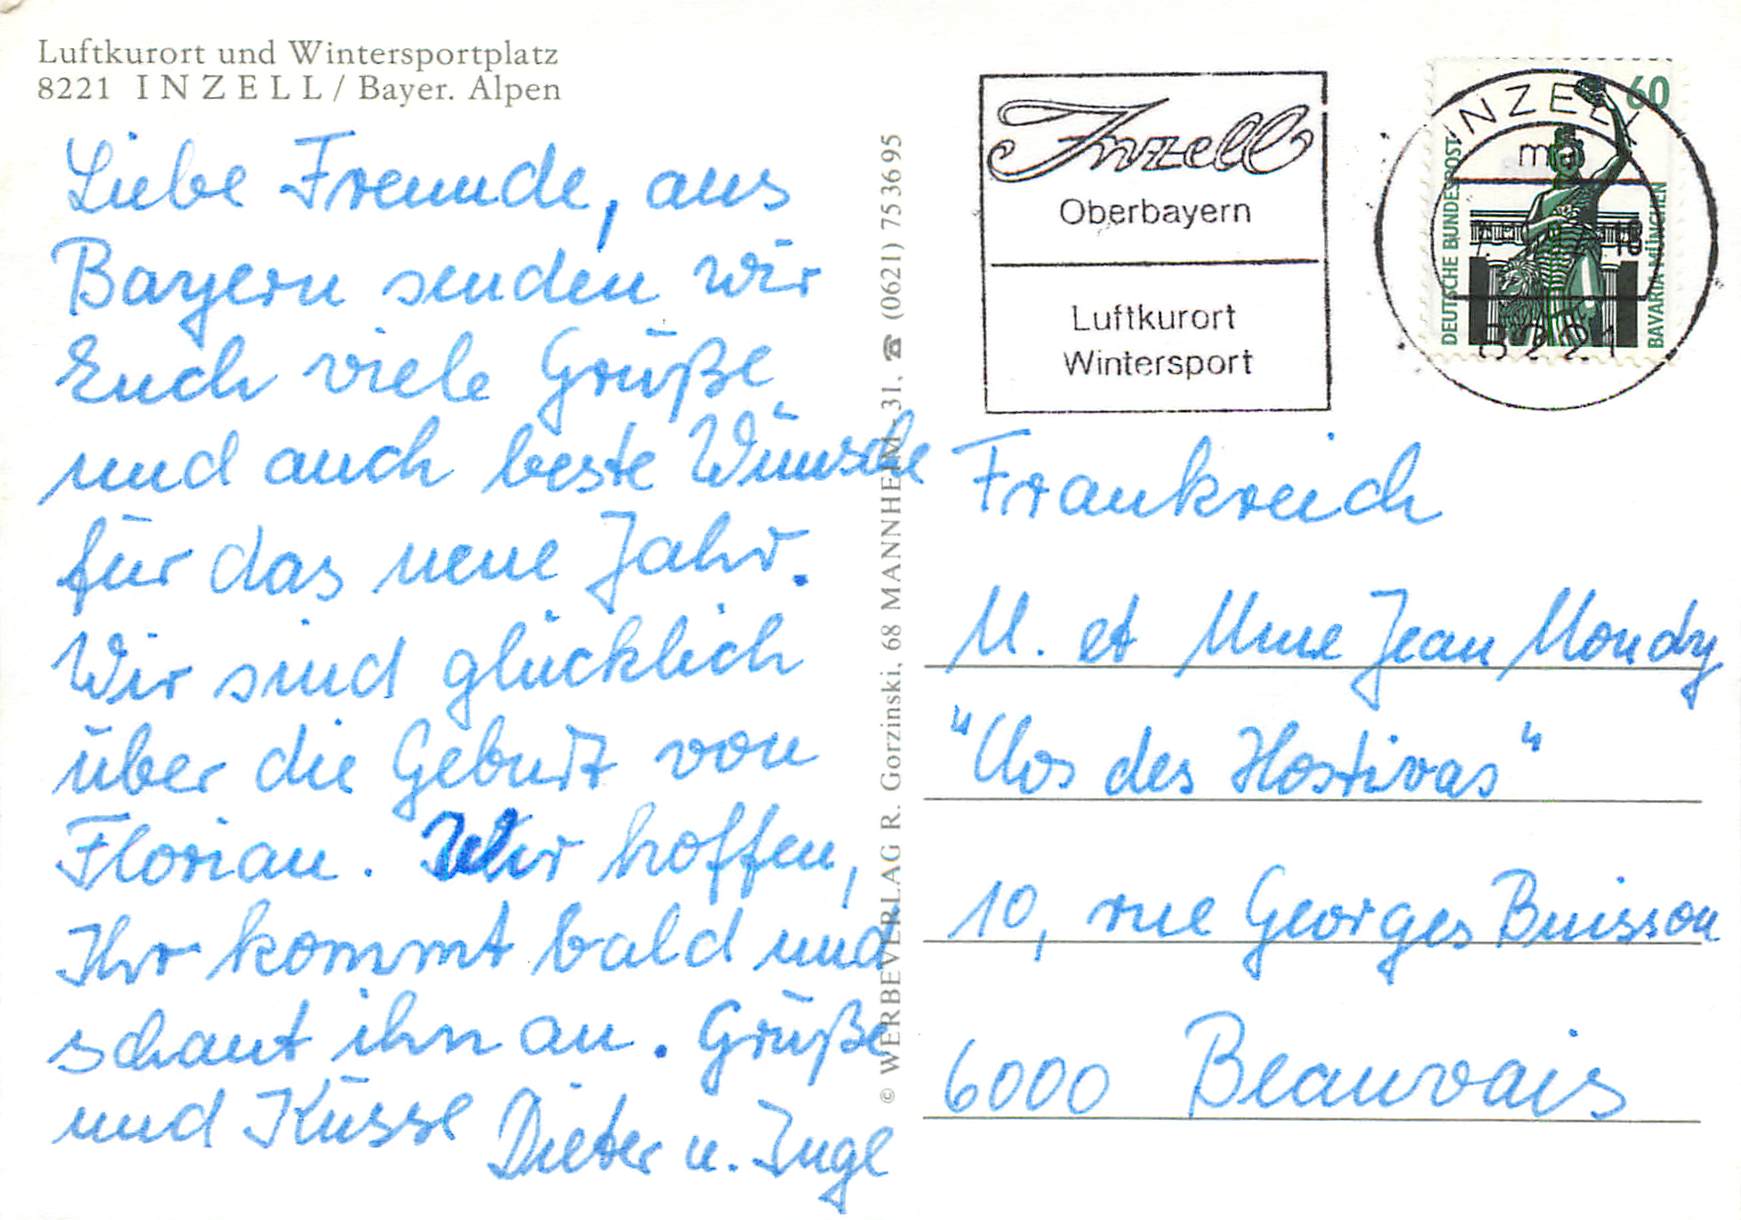 Luftkurort und Wintersportplatz
8221 INZELL / Bayer. Alpen
Liebe Freunde, aus
Bayern senden wir
Euch viele Grüße
und auch beste Wünsche
für das neue Jahr.
Wir sind glücklich
über die Geburt von
Florian. Wir hoffen,
Ihr kommt bald und
schaut ihn an. Grüße
und Küsse Dieter u. Inge
© WERBEVERLAG R. Gorzinski, 68 MANNHEIM 31, ☎ (0621) 753695
Inzell
Oberbayern
Luftkurort
Wintersport
INZELL
8221
60
DEUTSCHE BUNDESPOST
BAVARIA MÜNCHEN
Frankreich
M. et Mme Jean Mondy
"Clos des Hostivas"
10, rue Georges Buisson
6000 Beauvais